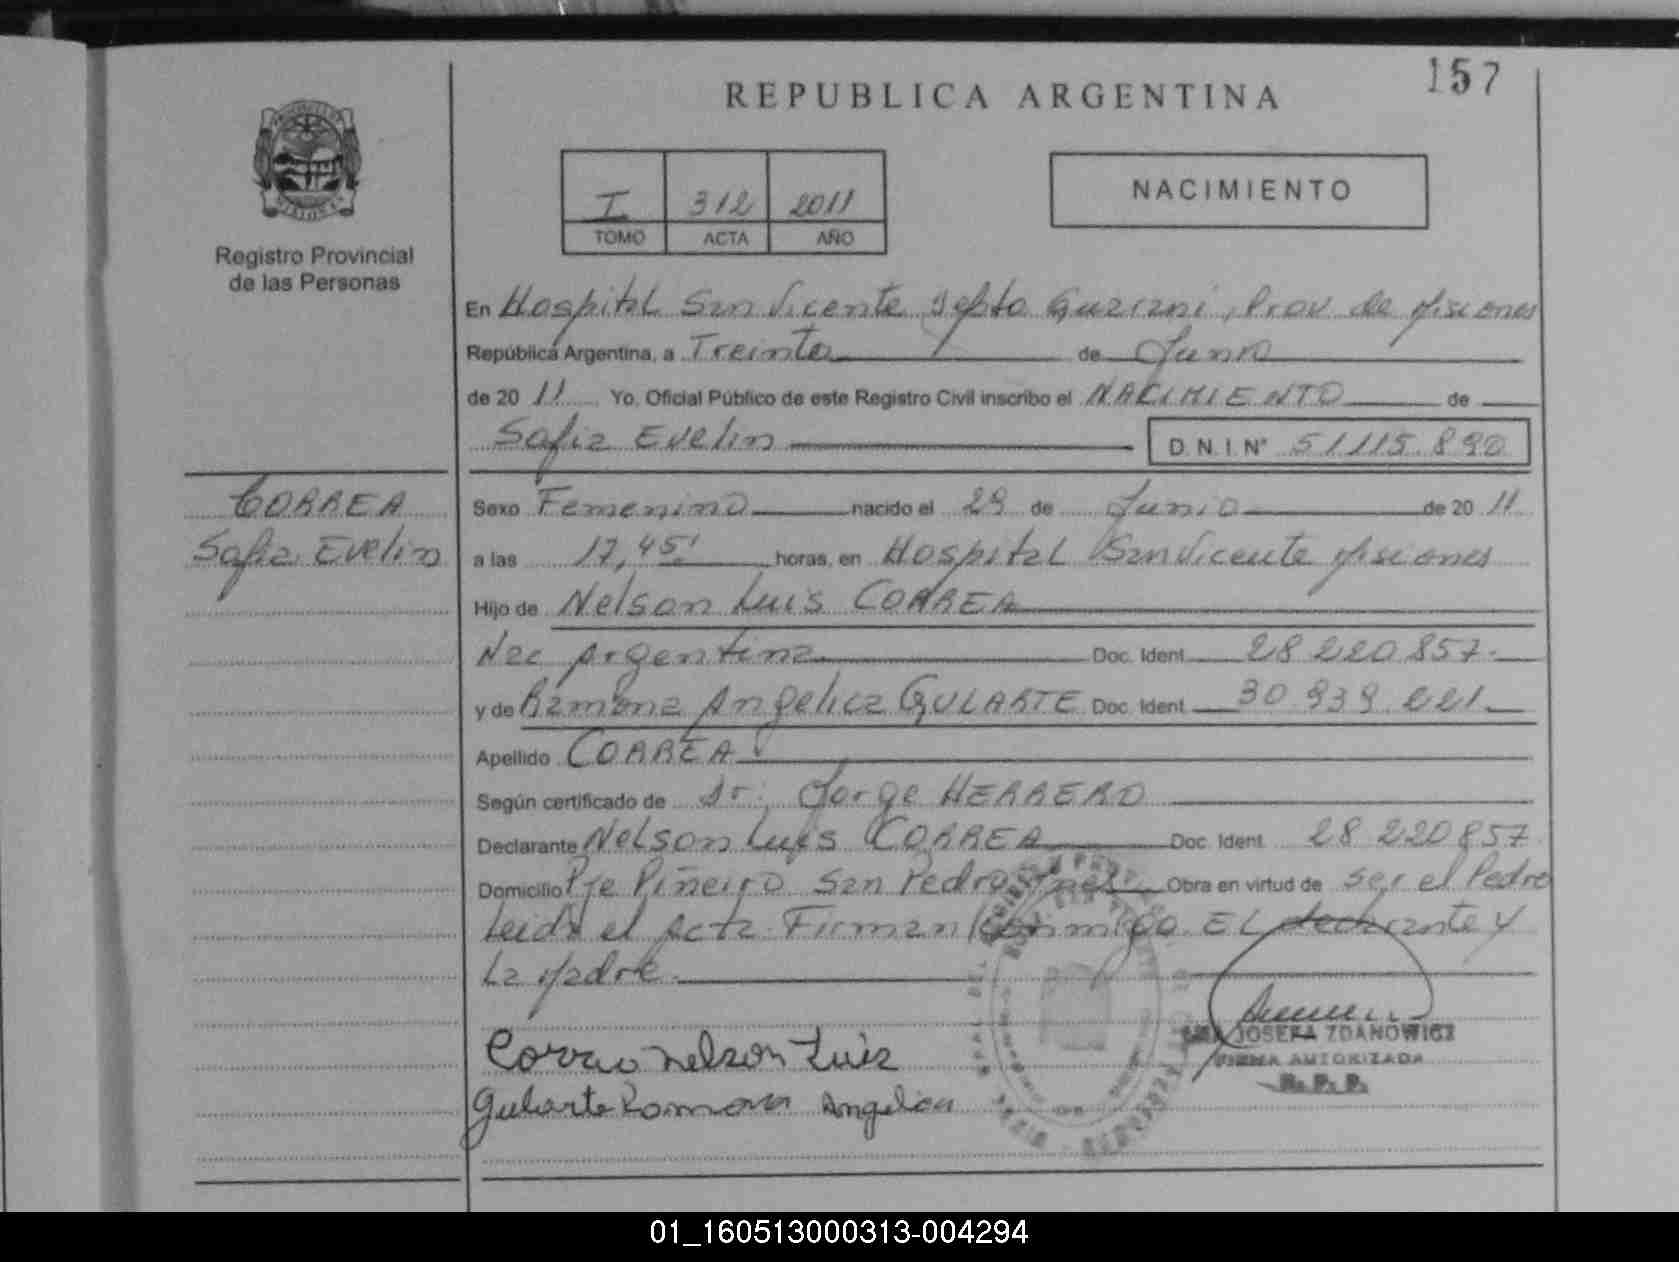 157
REPUBLICA ARGENTINA
NACIMIENTO
I 312 2011
TOMO ACTA AÑO
Registro Provincial
de las Personas
En Hospital San Vicente Depto Guarani, Prov de Misiones
República Argentina, a Treinta de Junio
de 20 11 Yo, Oficial Público de este Registro Civil inscribo el NACIMIENTO de
Sofia Evelin D.N.I. N° 51115.890
CORREA
Sofia Evelin
Sexo Femenino nacido el 29 de Junio de 20 11
a las 17,45' horas, en Hospital San Vicente Misiones
Hijo de Nelson Luis CORREA
Nac Argentina Doc. Ident. 28 220 857.
y de Ramona Angelica GULARTE Doc. Ident. 30 939 221.
Apellido CORREA
Según certificado de Dr: Jorge HERRERO
Declarante Nelson Luis CORREA Doc. Ident. 28 220857
Domicilio Pje Piñeiro San Pedro Mnes Obra en virtud de Ser el Padre
Leida el Acta Firman Conmigo EL declarante y
La Madre.
Correa Nelson Luis
Gularte Ramona Angelica
JOSEFA ZDANOWICZ
FIRMA AUTORIZADA
R. P. P.
01_160513000313-004294